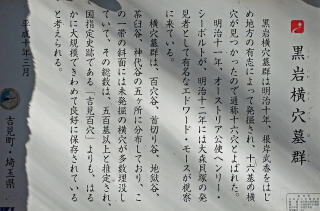 黒岩横穴墓群
黒岩横穴墓群は明治十年、根岸武香をはじ
め地方の有志によって発掘され、十六基の横
穴が見つかったので通称十六穴とよばれた。
明治十一年、オーストリア公使ヘンリー・
シーボルトが、明治十二年には大森貝塚の発
見者として有名なエドワード・モースが観察
に来ている。
横穴墓群は、百穴谷、首切り谷、地獄谷、
茶臼谷、神代谷の五ヶ所に分布しており、こ
の一帯の斜面には未発掘の横穴が多数埋没し
ていて、その総数は、五百基以上と推定され、
国指定史跡である「吉見百穴」よりも、はる
かに大規模できわめて良好に保存されている
と考えられる。
平成十年三月
吉見町・埼玉県